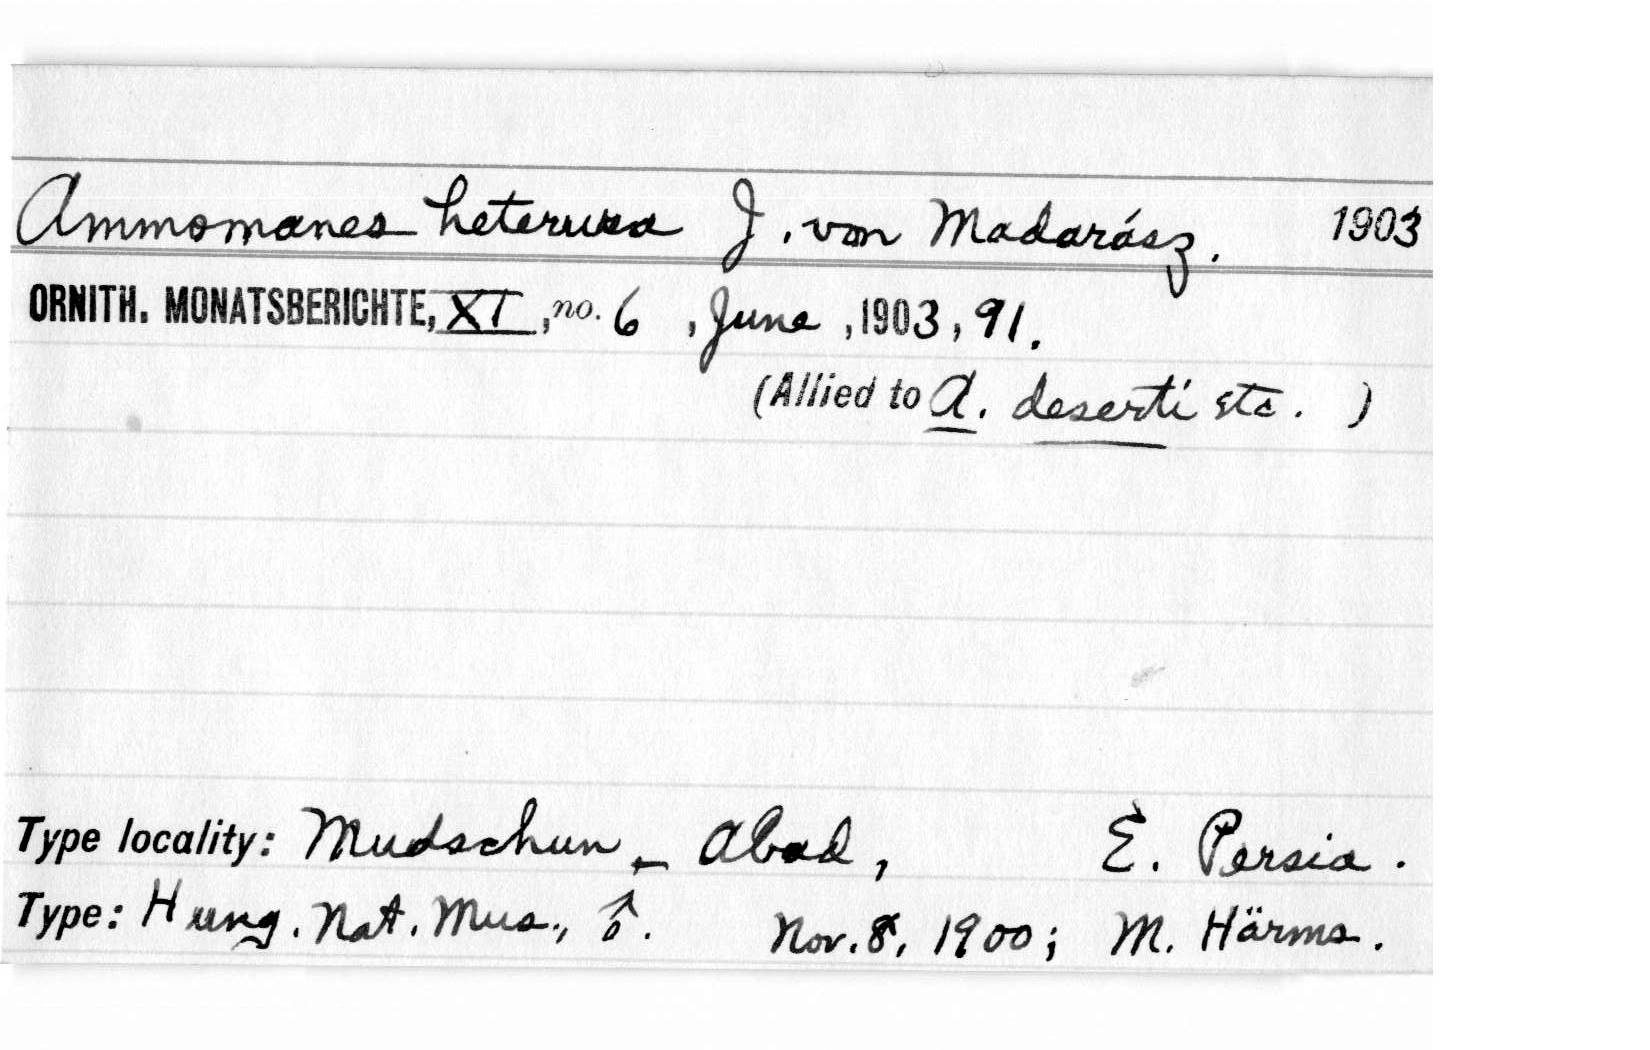 Ammomanes heterura J. von Madarász. 1903
ORNITH. MONATSBERICHTE, XI, no. 6, June, 1903, 91.
(Allied to A. deserti etc. )
Type locality: Mudschun-Abad, E. Persia.
Type: Hung. Nat. Mus., ♂. Nov. 8, 1900; M. Härms.